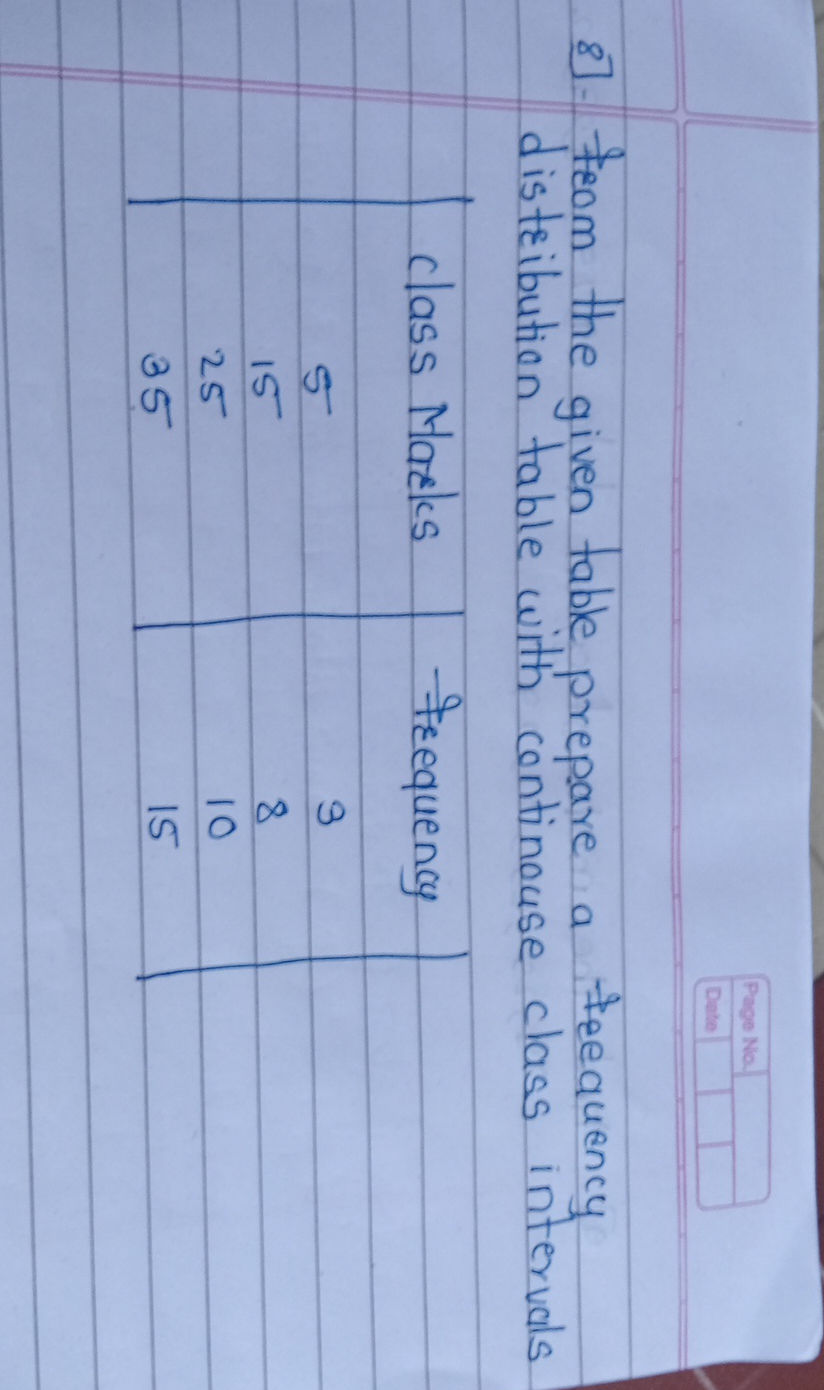 Page No.
Date
8]. From the given table prepare a frequency
distribution table with continouse class intervals
class Marks frequency
5 3
15 8
25 10
35 15